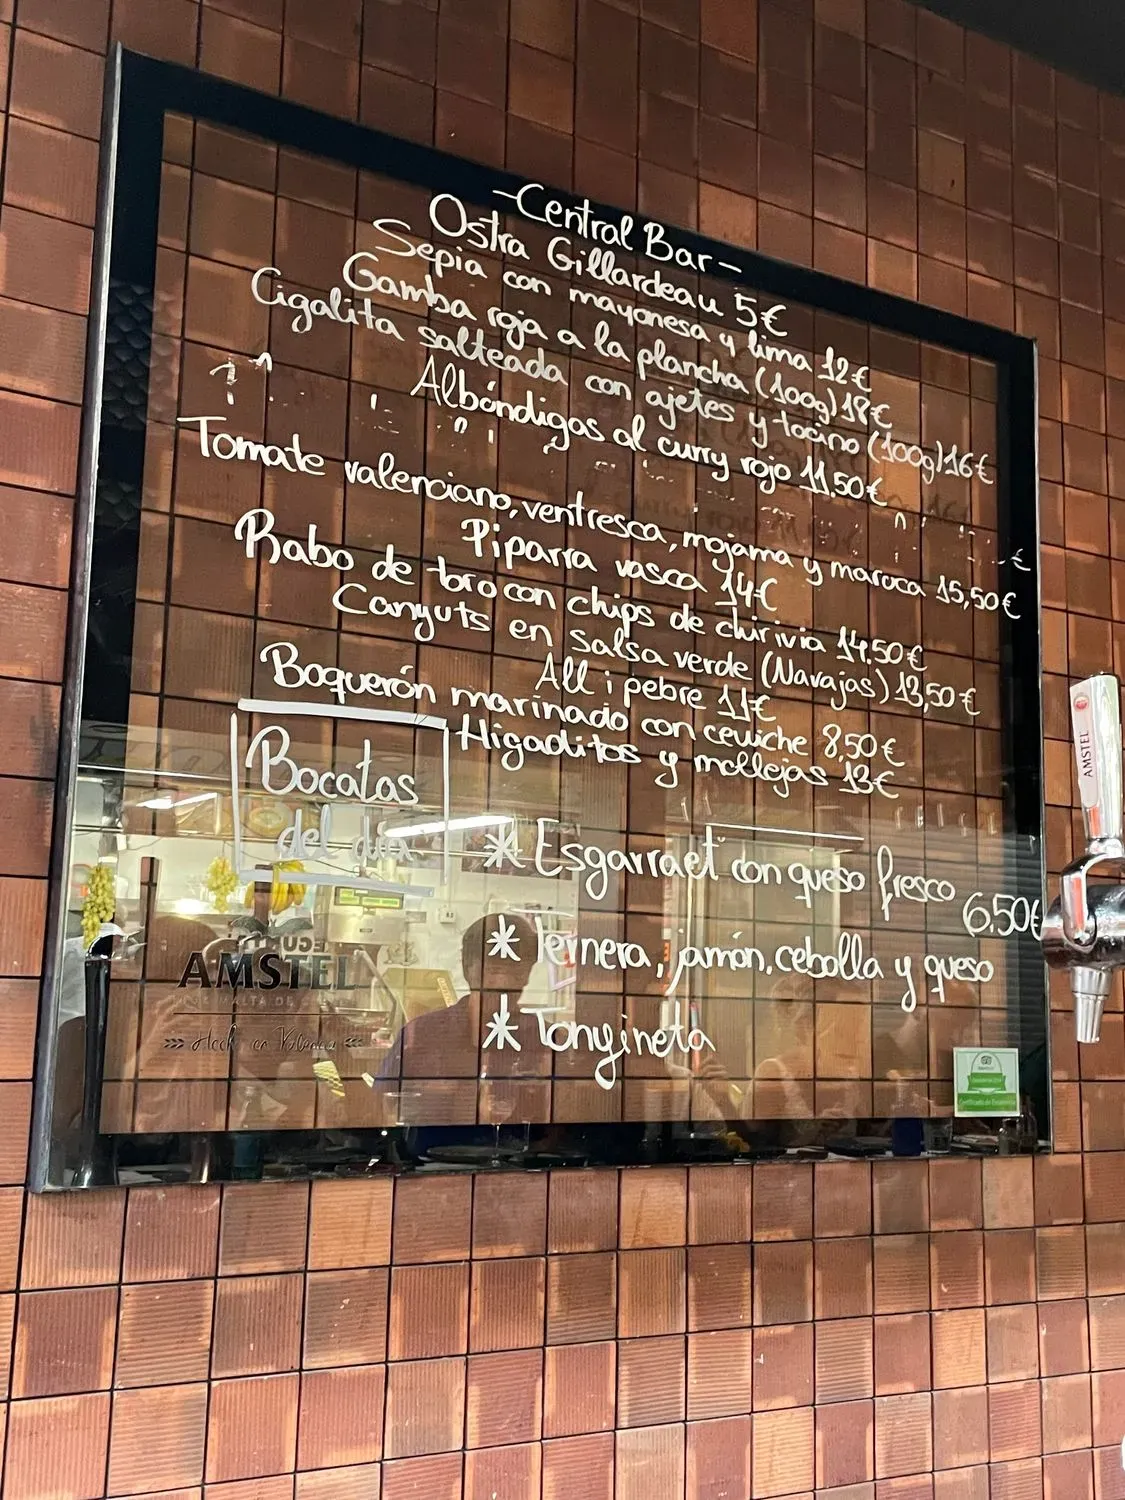 -Central Bar-
Ostra Gillardeau 5€
Sepia con mayonesa y lima 12€
Gamba roja a la plancha (100g) 18€
Cigalita salteada con ajetes y tocino (100g) 16€
Albóndigas al curry rojo 11.50€
Tomate valenciano, ventresca, mojama y maruca 15,50€
Piparra vasca 14€
Rabo de toro con chips de chirivia 14.50€
Canyuts en salsa verde (Navajas) 13,50€
All i pebre 11€
Boquerón marinado con ceviche 8,50€
Higaditos y mollejas 13€
Bocatas
del día
* Esgarraet con queso fresco
6.50€
* Ternera, jamón, cebolla y queso
* Tonyineta
AMSTEL
AMSTEL